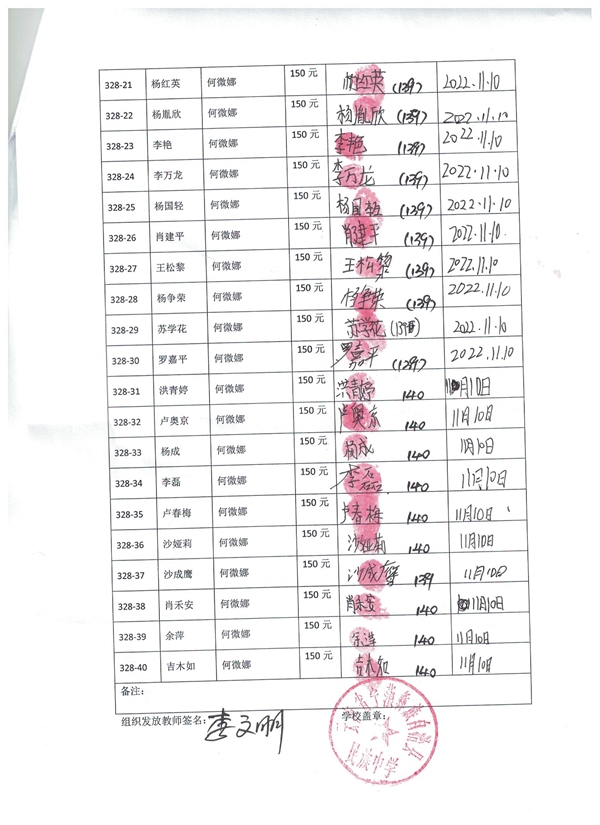 328-21 杨红英 何微娜 150 元 杨红英 (139) 2022.11.10
328-22 杨胤欣 何微娜 150 元 杨胤欣 (139) 2022.11.10
328-23 李艳 何微娜 150 元 李艳 (139) 2022.11.10
328-24 李万龙 何微娜 150 元 李万龙 (139) 2022.11.10
328-25 杨国轻 何微娜 150 元 杨国轻 (139) 2022.11.10
328-26 肖建平 何微娜 150 元 肖建平 (139) 2022.11.10
328-27 王松黎 何微娜 150 元 王松黎 (139) 2022.11.10
328-28 杨争荣 何微娜 150 元 杨争荣 (139) 2022.11.10
328-29 苏学花 何微娜 150 元 苏学花 2022.11.10
328-30 罗嘉平 何微娜 150 元 罗嘉平 (139) 2022.11.10
328-31 洪青婷 何微娜 150 元 洪青婷 140 月10日
328-32 卢奥京 何微娜 150 元 卢奥京 140 11月10日
328-33 杨成 何微娜 150 元 杨成 140 11月10日
328-34 李磊 何微娜 150 元 李磊 140 11月10日
328-35 卢春梅 何微娜 150 元 卢春梅 140 11月10日
328-36 沙娅莉 何微娜 150 元 沙娅莉 140 11月10日
328-37 沙成鹰 何微娜 150 元 沙成鹰 139 11月10日
328-38 肖禾安 何微娜 150 元 肖禾安 140 11月10日
328-39 余萍 何微娜 150 元 余萍 140 11月10日
328-40 吉木如 何微娜 150 元 吉木如 140 11月10日
备注：
组织发放教师签名： 李文明 学校盖章：
民族中学